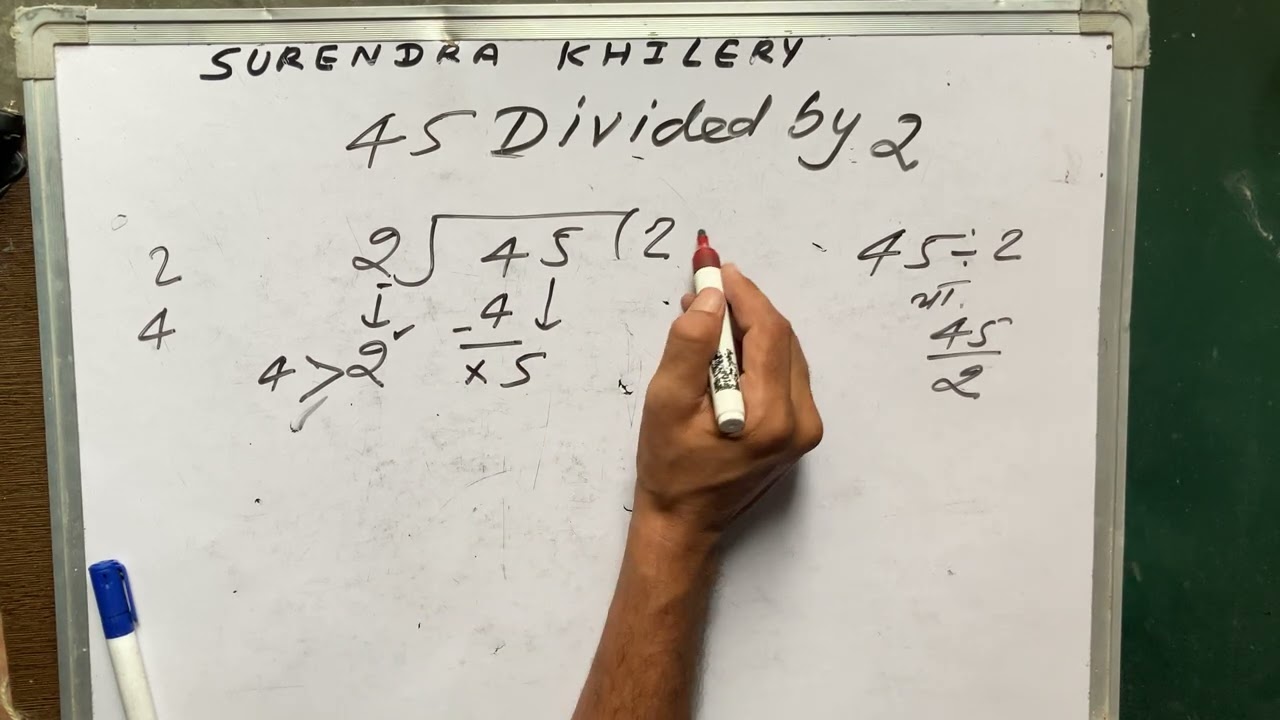 SURENDRA KHILERY
45 Divided by 2
2
4
2 45 (2
- 4
4 > 2 × 5
45 ÷ 2
या.
45
2